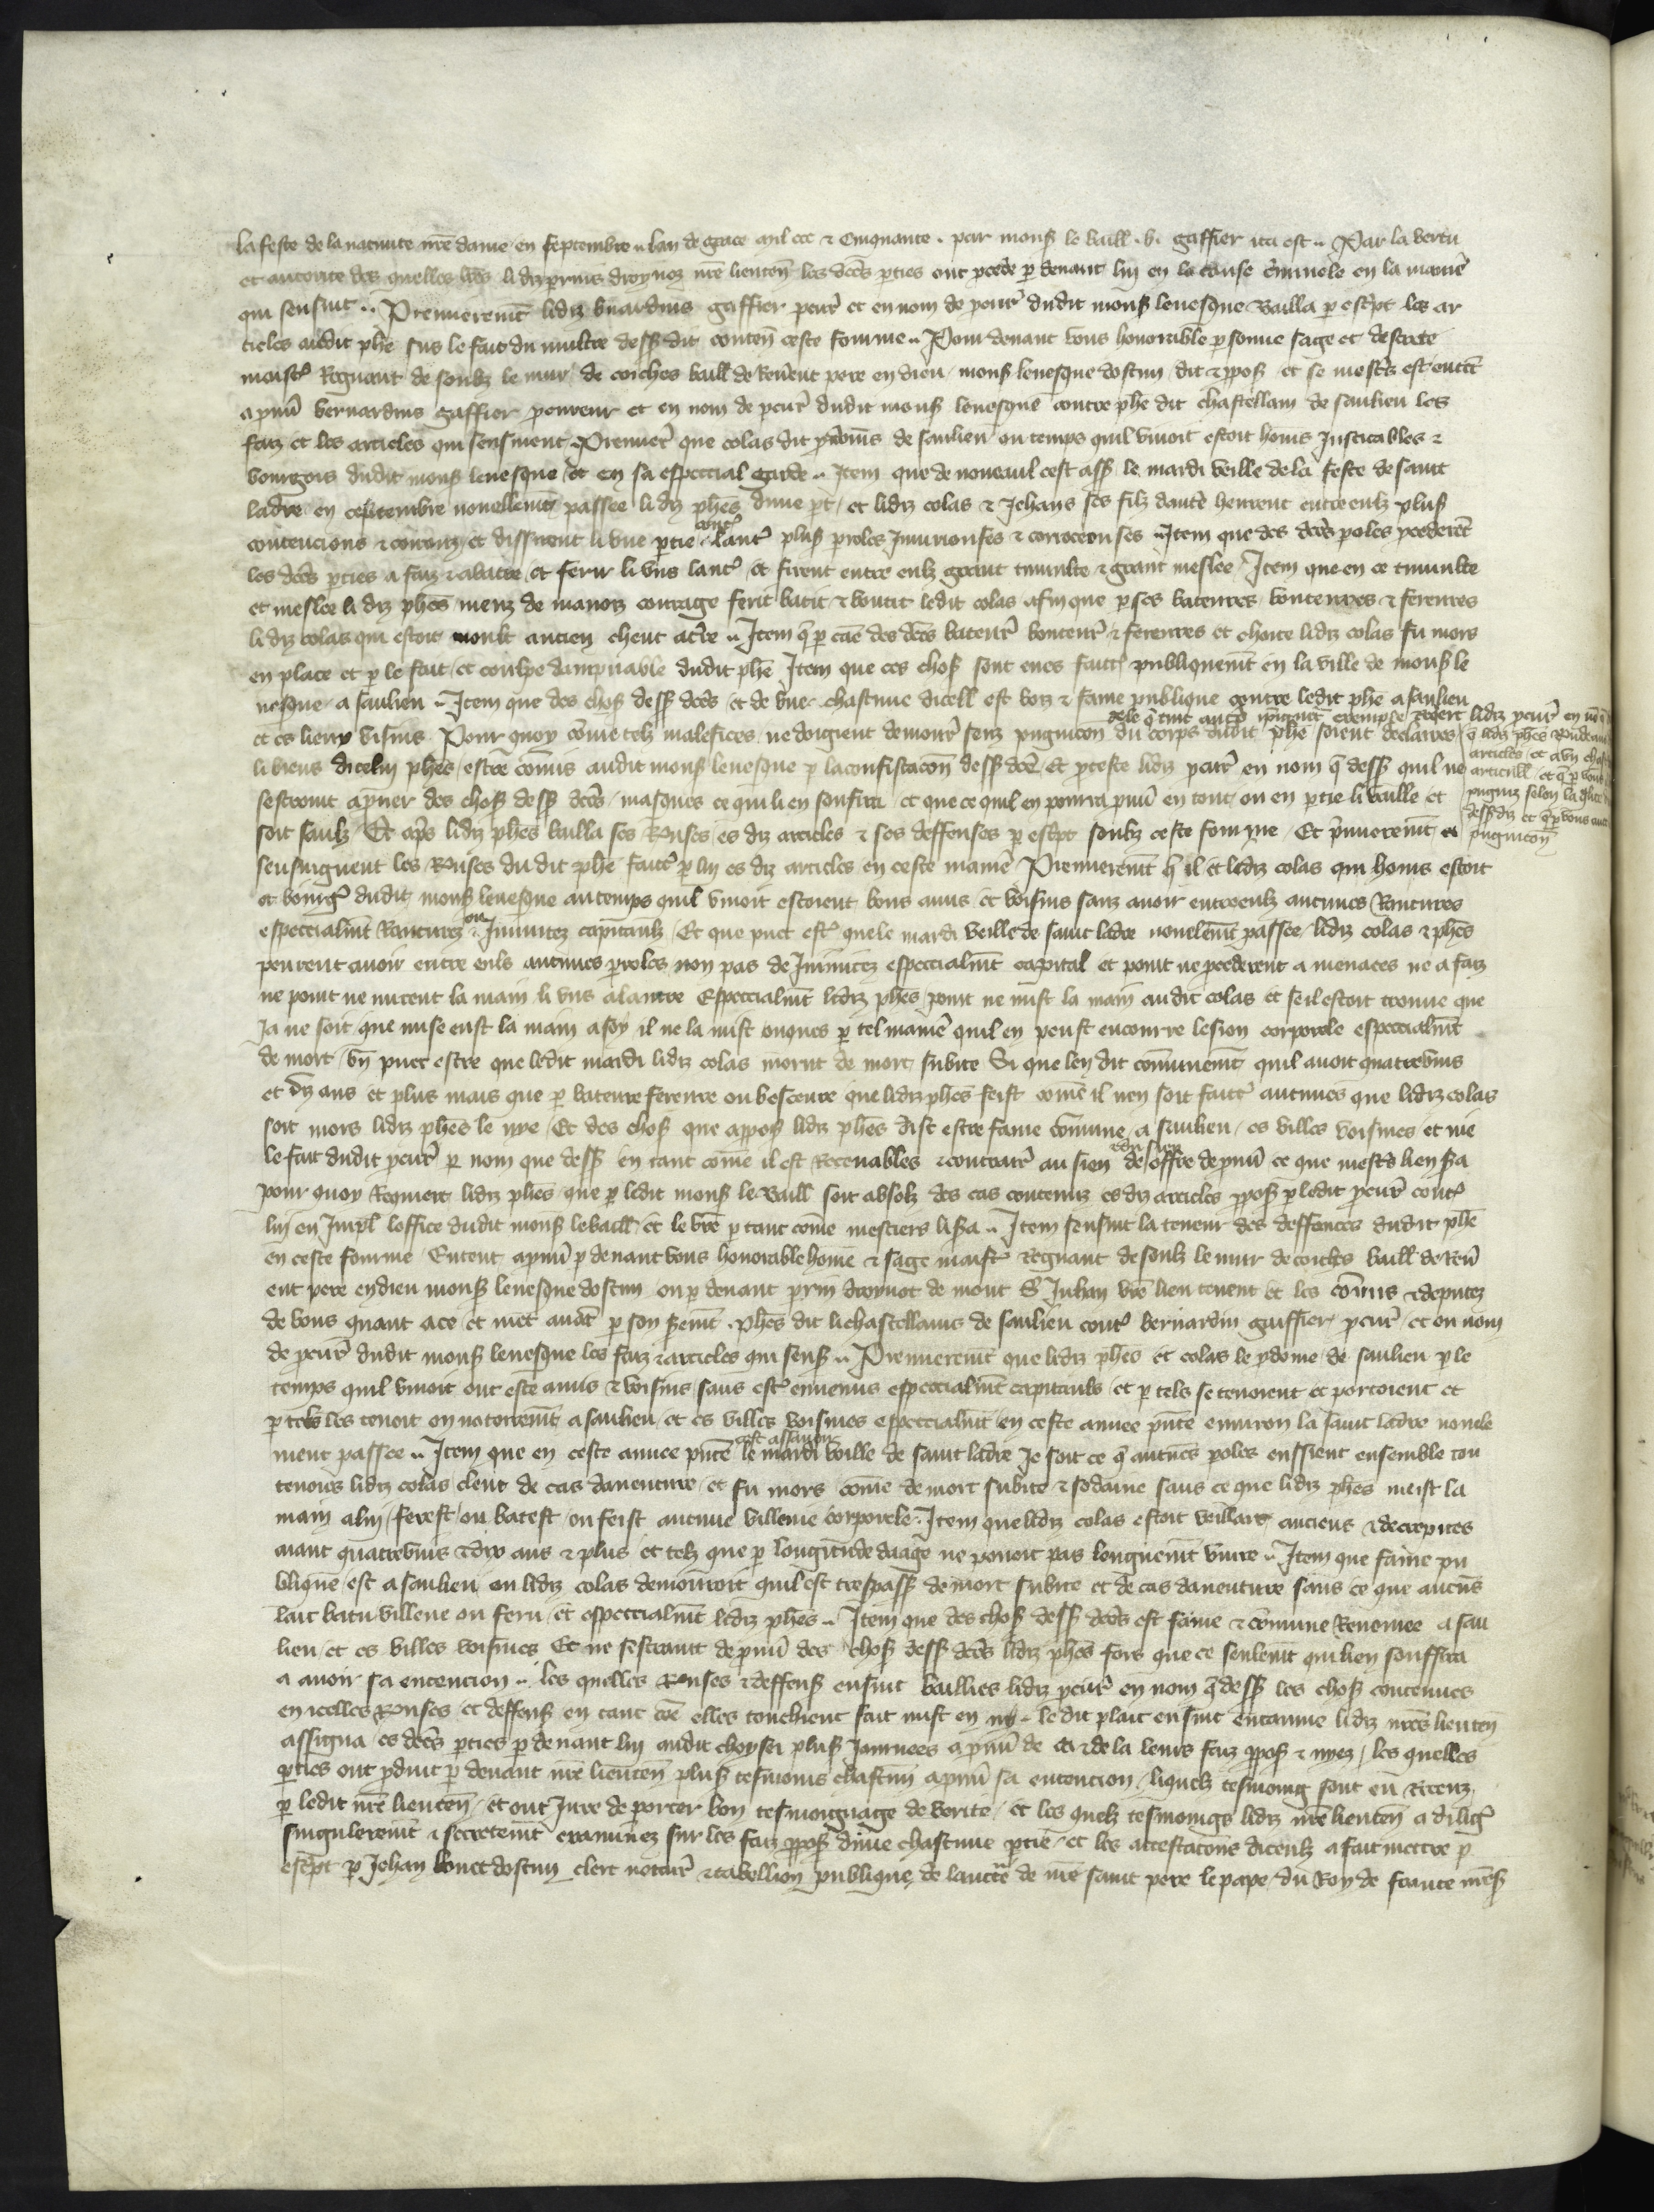 la feste de la nativite nr̃e dame en septembre .. lan de grace mil ccc ⁊ cinquante . par mons̃ le baill . b. gaffier ita est .. Par la vertu
et autorite des quelles lr̃es li diz prins droynoz nr̃e lieuten̄ les dc̃es p̱ties ont ꝓcede p̱ devant luy en la cause c̃minele en la maniẽ
qui sensuit .. Premieremẽt lidiz b̃nardins gaffier ꝓcur̃ et en nom de ꝓcur̃ dudit mons̃ levesque bailla p̱ esc̃pt les ar
ticles audit ph̃e sus le fait du multre dess̃ dit conten̄ ceste forme .. Pour devant vous honorable p̱sonne sage et descrete
maist̃ Regnaut de soubz le mur de corches baill de Rev̄ent pere en dieu mons̃ levesque dostun dit ⁊ ꝓpos̃ et se mest̃s est entẽt
a ꝓuũ bernardins gaffier ꝓcureur et en nom de ꝓcur̃ dudit mons̃ levesque contre ph̃e dit chastellain de saulieu les
faiz et les articles qui sensuient . Premier̃ que colas dit ꝓdoms de saulieu ou temps quil vivoit estoit homs justicables ⁊
bourgois dudit mons̃ levesque et en sa especcial garde .. Item que de noveaul cest ass̃ le mardi veille de la feste de saint
ladre en ceptembre novellemẽt passee li diz ph̃es dune p̱t et lidiz colas ⁊ Jehans ses filz dautre heurent entre eulz plus̃
contencions ⁊ corrouz et dissirent li une p̱tie cont̃ laut̃ plus̃ p̱roles injurionses ⁊ corroceonses .. Item que des dc̃es p̱oles ꝓcederẽt
les dc̃es p̱ties a faiz ⁊ abatre et ferir li uns laut̃ et firent entre eulz grant tumulte ⁊ grant meslee . Item que en ce tumulte
et meslee li diz ph̃es meuz de mauvez courage ferit batit ⁊ boutit ledit colas afin que p̱ ses bateures bouteures ⁊ fereures
li diz colas qui estoit moult ancien cheut at̃re .. Item q̃ p̱ cãe des dc̃es bateur̃ bouteur̃ ⁊ fereures et choite lidiz colas fu mors
en place et p̱ le fait et coulpe dampnable dudit ph̃e Item que ces chos̃ sont enes fait̃ publiquemẽt en la ville de mons̃ le
vesque a saulieu .. Item que des chos̃ dess̃ dc̃es et de une chascune dicell est voiz ⁊ fame publique contre ledit ph̃e a saulieu
et es lieux visins . Pour quoy cõme telz malefices ne doigient demour̃ senz pugnicon̄ du corps dudit ph̃e soient declaires
li biens dicelluy ph̃es estre cõmis audit mons̃ levesque p̱ la confiscacon̄ dess̃ dc̃e Et ꝓteste lidiz ꝓcur̃ en nom q̃ dess̃ quil ne
sestroint a p̃uver des chos̃ dess̃ dc̃es masques ce qui li en souffira et que ce quil en pourra ꝓuũ en tout ou en p̱tie li vaille et
soit saulz . Et ap̃s lidiz ph̃es bailla ses Rõnses es diz articles ⁊ ses deffenses p̱ esc̃pt soubz ceste forme . Et p̃mieremẽt
sensuiguent les Rõnses du dit ph̃e fait̃ p̱ luy es diz articles en ceste maniẽ Premieremẽt q̃ il et lediz colas qui homs estoit
et bourg̃ dudit mons̃ levesque autemps quil vivoit estoient bons amis et voisins sanz avoir entre eulz aucunes Rancures
especcialmẽt Rancures ou Inimitez capitaulz . Et que puet est̃ que le mardi veille de saint ladre novelemẽt passee lidiz colas ⁊ ph̃es
peurent avoir entre eulx aucunes p̱roles non pas de Inimitez especcialmẽt capital et point ne ꝓcederent a menaces ne a faiz
ne point ne mirent la main li uns alautre Especcialmẽt lediz ph̃es point ne mist la main audit colas et seil estoit trouve que
Ja ne soit que mise eust la main a soy il ne la mist onques p̱ tel maniẽ quil en peust encourre lesion corporele especcialmẽt
de mort bn̄ puet estre que ledit mardi lidiz colas morut de mort subite Si que len dit cõmunemẽt quil avoit quatrevins
et dix ans et plus mais que p̱ bateure fereure ou besceure que lidiz ph̃es feist cõme il nen soit fait̃ aucunes que lidiz colas
soit mors lidiz ph̃es le nye . Et des chos̃ que appos̃ lidiz ph̃es dist estre fame cõmune a saulieu es villes voisines et nie
le fait dudit ꝓcur̃ p̱ nom que dess̃ en tant cõme il est Recevables ⁊ contrair̃ au sien de offre de ꝓuũ ce que mest̃s lien s̃a
pour quoy Requiert lidiz ph̃es que p̱ ledit mons̃ le baill soit absolz des cas contenuz es diz articles ꝓpos̃ p̱ ledit ꝓcur̃ cont̃
luy en Impl̃ loffice dudit mons̃ le baill et le v̄re p̱ tant cõme mestiers li s̃a .. Item sensuit la teneur des deffences dudit ph̃e
en ceste fourme . Entent a ꝓuũ p̱ devant vous honorable home ⁊ sage maist̃ Regnaut de soulz le mur de corches baill de Rev̄
ent pere en dieu mons̃ levesque dostun ou p̱ devant prin droynot de mont S̃ Juhan vr̃e lieu tenent et les cõmis ⁊ deputez
de vous quant ace et met avãt p̱ son s̃emẽt . ph̃es dit li chastellains de saulieu cont̃ bernardin gaffier ꝓcur̃ et ou nom
de ꝓcur̃ dudit mons̃ levesque les faiz ⁊ articles qui sens̃ .. Premieremẽt que lidiz ph̃es et colas le ꝓdome de saulieu p̱ le
temps quil vivoit ont este amis ⁊ voisins sans est̃ ennemis especcialmẽt capitauls et p̱ tels se tenoient et portoient et
p̱ tels les tenoit on notoiremẽt a saulieu et es villes voisines especcialmẽt en ceste annee p̃nte environ la saint ladre novele
ment passee .. Item que en ceste annee p̃nte cest assavoir le mardi voille de saint ladre Je soit ce q̃ aucunes p̱oles enssient ensemble tou
tevoies lidiz colas cleut de cas daventure et fu mors cõme de mort subite ⁊ sodaine sans ce que lidiz ph̃es meist la
main aluy ferest ou batest ou feist aucune villenie corporele . Item que lidiz colas estoit veillars anciens ⁊ decrepites
aiant quatrevins ⁊ dix ans ⁊ plus et telz que p̱ longitude daage ne pouoit pas longuemẽt vivre .. Item que fame pu
blique est a saulieu ou lidiz colas demouroit quil est trespass̃ de mort subite et de cas daventure sans ce que aucuns
lait batu villene ou feru et especcialmẽt lediz ph̃es .. Item que des chos̃ dess̃ dc̃es est fame ⁊ cõmune Renomee a sau
lieu et es villes voisines Et ne sestraint de ꝓuũ des chos̃ dess̃ dc̃es lidiz ph̃es fors que ce seulemẽt qui lien souffira
a avoir sa entencion .. les quelles Rõnses ⁊ deffens̃ ensuit baillies lidiz ꝓcur̃ en nom q̃ dess̃ les chos̃ contenues
en icelles Rõnses et deffens̃ en tant cõe elles touchient fait mist en ny .. le dit plait ensuit entamme lidiz nr̃es lieuten̄
assigna es dc̃es p̱ties p̱ devant luy audit choysei plus̃ Journees a ꝓuũ de ca ⁊ de la leurs faiz ꝓpos̃ ⁊ nyez . les quelles
p̱ties ont ꝓduit p̱ devant nr̃e lieuten̄ plus̃ tesmoins chascun a ꝓuũ sa entencion liquelz tesmoing sont eu Recenz
p̱ ledit nr̃e lieuten̄ et ont Jure de porter bon tesmoignage de verite et les quelz tesmoings lidiz nr̃e lieuten̄ a dilig̃
singuleremẽt ⁊ secretemẽt examinez sur les faiz ꝓpos̃ dune chascune p̱tie et les attestacons diceulz a fait mettre p̱
esc̃pt p̱ Jehan bonet dostun clerc notair̃ ⁊ tabellion publique de lauct̃te de nr̃e saint pere le pape du Roy de france nr̃es̃
lidiz ꝓcur̃ en
q̃ lidiz ph̃es Rõnde
articles et a un
articull et q̃ p̱ vout
pugniz selon la
dess̃ diz et q̃ p̱ vous
pugnicon̄